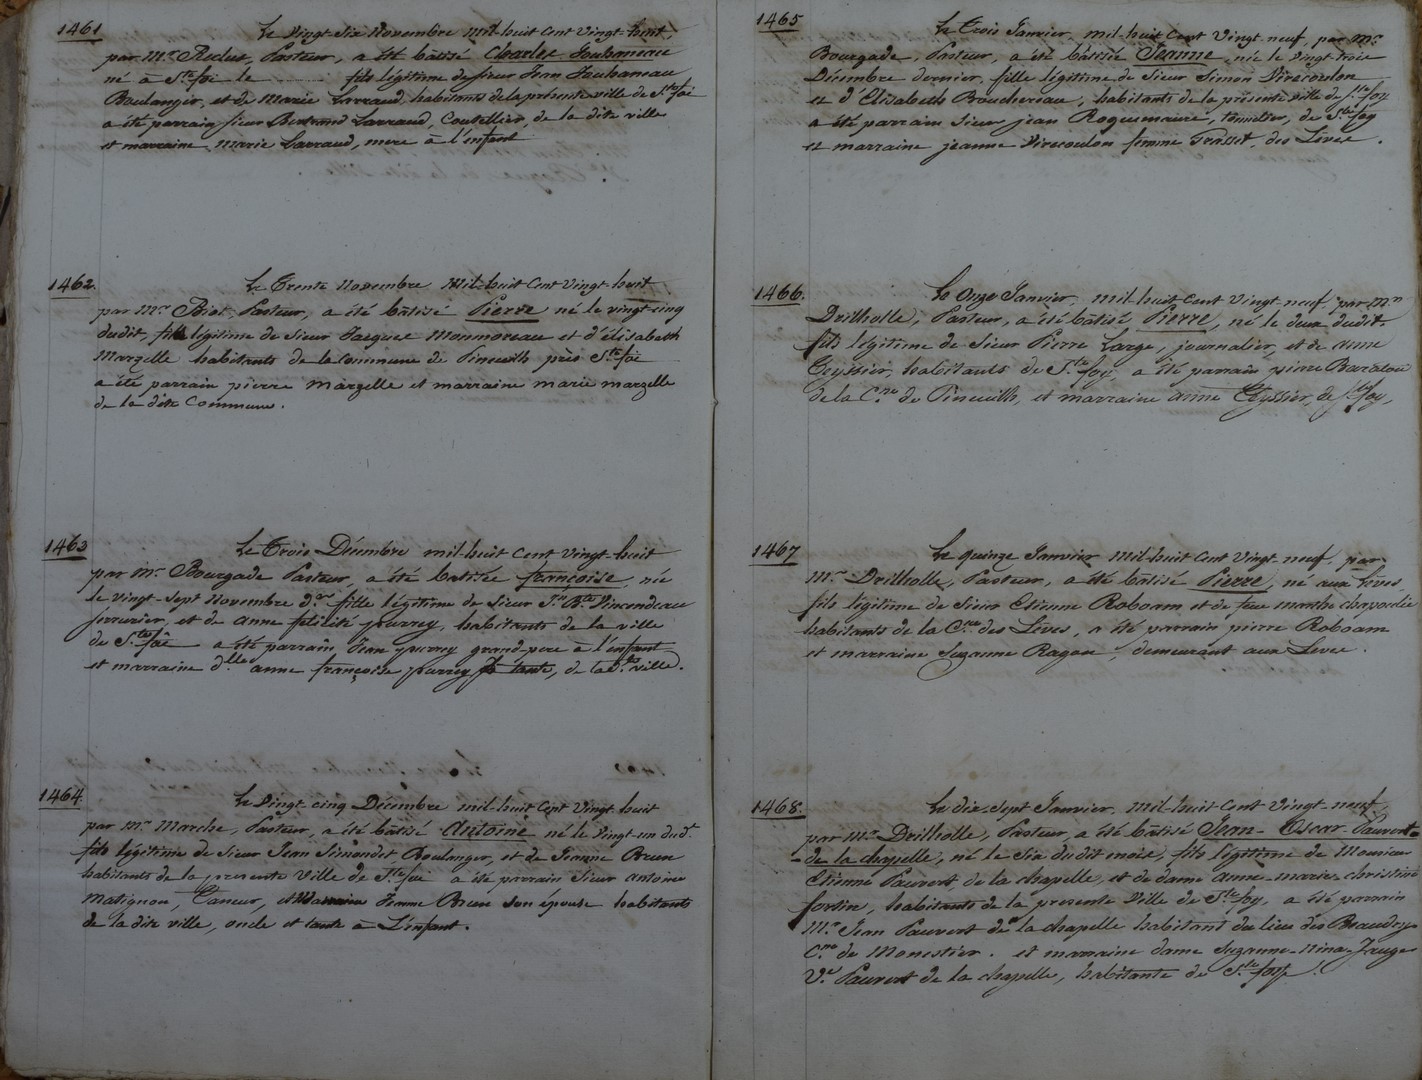 1461
Le Vingt-Six Novembre mil-huit Cent Vingt-huit,
par Mr. Reclus, Pasteur, a été bâtisé Charles Jouhaneau
né à Ste foi le fils légitime de sieur Jean Jouhaneau
Boulanger, et de Marie Larraud, habitants de la présente ville de Ste foi
a été parrain sieur Bertrand Larraud, Coutellier, de la dite ville
et marraine Marie Larraud, mere à l'enfant
1462.
Le Trente Novembre Mil-huit Cent Vingt-huit
par Mr. Biot, Pasteur, a été bâtisé Pierre né le vingt-cinq
dudit, fils légitime de Sieur Jacques Monmoreau et d'élisabeth
Marzelle habitants de la Commune de Pineuilh près Ste foi
a été parrain pierre marzelle et marraine marie marzelle
de la dite Commune.
1463
Le Trois Décembre mil-huit Cent Vingt-huit
par Mr. Bourgade Pasteur, a été batisée françoise, née
le vingt-sept Novembre dr. fille légitime de Sieur Jn. Bte. Vincendeau
serrurier, et de anne félicité purrey, habitants de la ville
de Ste foi a été parrain Jean purrey grand-pere à l'enfant
et marraine dlle. anne françoise purrey sa tante, de la dte. ville.
1464
Le Vingt-cinq Décembre mil-huit Cent Vingt huit
par Mr. Marche, Pasteur, a été bâtisé Antoine né le Vingt-un dudt.
fils légitime de sieur Jean Simondet Boulanger, et de Jeanne Brun
habitants de la presente Ville de Ste foi a été parrain, Sieur antoine
Matignon, Taneur, et Marraine Jeanne Brun son épouse habitants
de la dite ville, oncle et tante à L'enfant.
1465
Le Trois Janvier mil-huit Cent Vingt-neuf, par Mr.
Bourgade, Pasteur, a été bâtisée Jeanne, née le vingt-trois
Décembre dernier, fille légitime de Sieur Simon Virecoulon
et d'Elisabeth Bouchereau, habitants de la présente ville de Ste foy
a été parrain Sieur jean Roquemaure, tonnelier, de Ste foy
et marraine jeanne Virecoulon femme Trasset, des Lèves.
1466.
Le Onze Janvier mil-huit Cent Vingt-neuf par Mr.
Drilholle, Pasteur, a été bâtisé Pierre, né le deux dudit.
fils légitime de Sieur Pierre Large, journalier, et de anne
Teyssier, habitants de Ste foy, a été parrain pierre
de la Cne. de Pineuilh, et marraine anne Teyssier, de Ste foy,
1467
Le quinze Janvier mil-huit Cent Vingt-neuf par
Mr. Drilholle, Pasteur, a été bâtisé Pierre, né aux Lèves,
fils légitime de Sieur Etienne Roboam et de feue marthe chapoulie
habitants de la Cne. des Lèves, a été parrain pierre Roboam
et marraine Suzanne Ragon, demeurant aux Lèves.
1468.
Le dix-Sept Janvier mil-huit Cent Vingt-neuf,
par Mr. Drilholle, Pasteur, a été bâtisé Jean-Oscar Pauvert-
-de la chapelle, né le Six dudit mois, fils légitime de Monsieur
Etienne Pauvert de la chapelle, et de dame anne-marie-christine
fortin, habitants de la presente Ville de Ste foy, a été parrain
Mr. Jean Pauvert de la chapelle habitant du lieu des
Cne. de Monestier. et marraine dame Suzanne-Nina-Jauge
Ve. Pauvert de la chapelle, habitante de Ste foy.